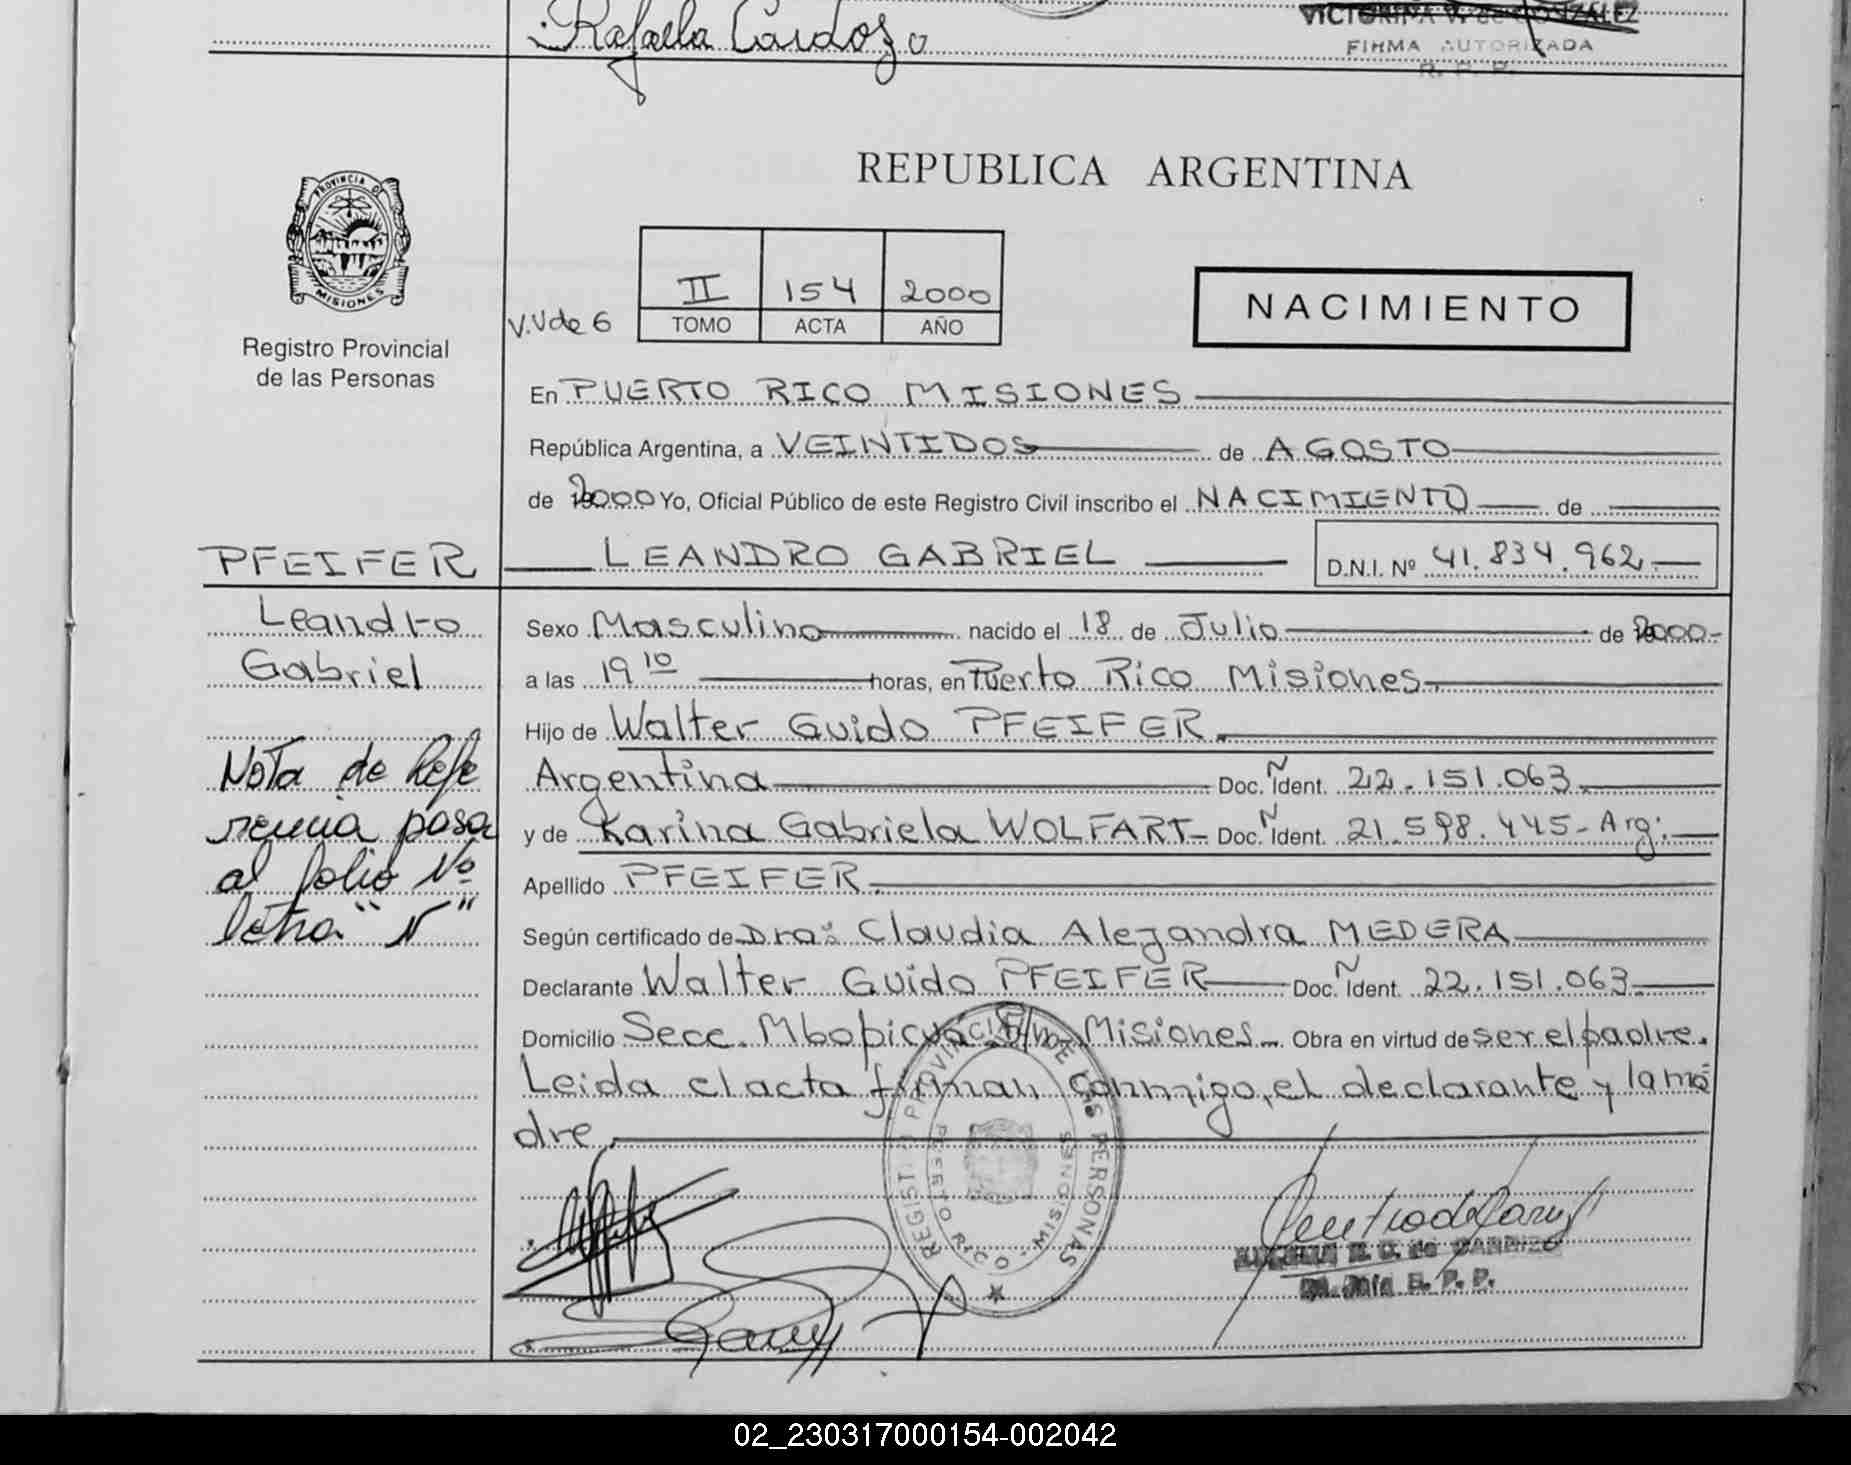 Rafaela Cardozo
VICTORINA V. de GONZALEZ
FIRMA AUTORIZADA
R. P. P.
PROVINCIA DE
MISIONES
Registro Provincial
de las Personas
REPUBLICA ARGENTINA
V.V de 6
II 154 2000
TOMO ACTA AÑO
NACIMIENTO
En PUERTO RICO MISIONES
República Argentina, a VEINTIDOS de AGOSTO
de 2000 Yo, Oficial Público de este Registro Civil inscribo el NACIMIENTO de
PFEIFER LEANDRO GABRIEL D.N.I. Nº 41.834.962.
Leandro
Gabriel
Nota de Refe
rencia pasa
al folio Nº
letra "N"
Sexo Masculino nacido el 18 de Julio de 2000-
a las 19 10 horas, en Puerto Rico Misiones.
Hijo de Walter Guido PFEIFER.
Argentina Doc. Ident. 22.151.063.
y de Karina Gabriela WOLFART- Doc. Ident. 21.598.445- Arg:
Apellido PFEIFER.
Según certificado de Dra: Claudia Alejandra MEDERA
Declarante Walter Guido PFEIFER Doc. Ident. 22.151.063.
Domicilio Secc. Mbopicuá Misiones. Obra en virtud de ser el padre.
Leida el acta firman conmigo, el declarante y la ma
dre.
REGISTRO PROVINCIAL DE LAS PERSONAS
PUERTO RICO - MISIONES
de CARRIZO
R. P. P.
02_230317000154-002042